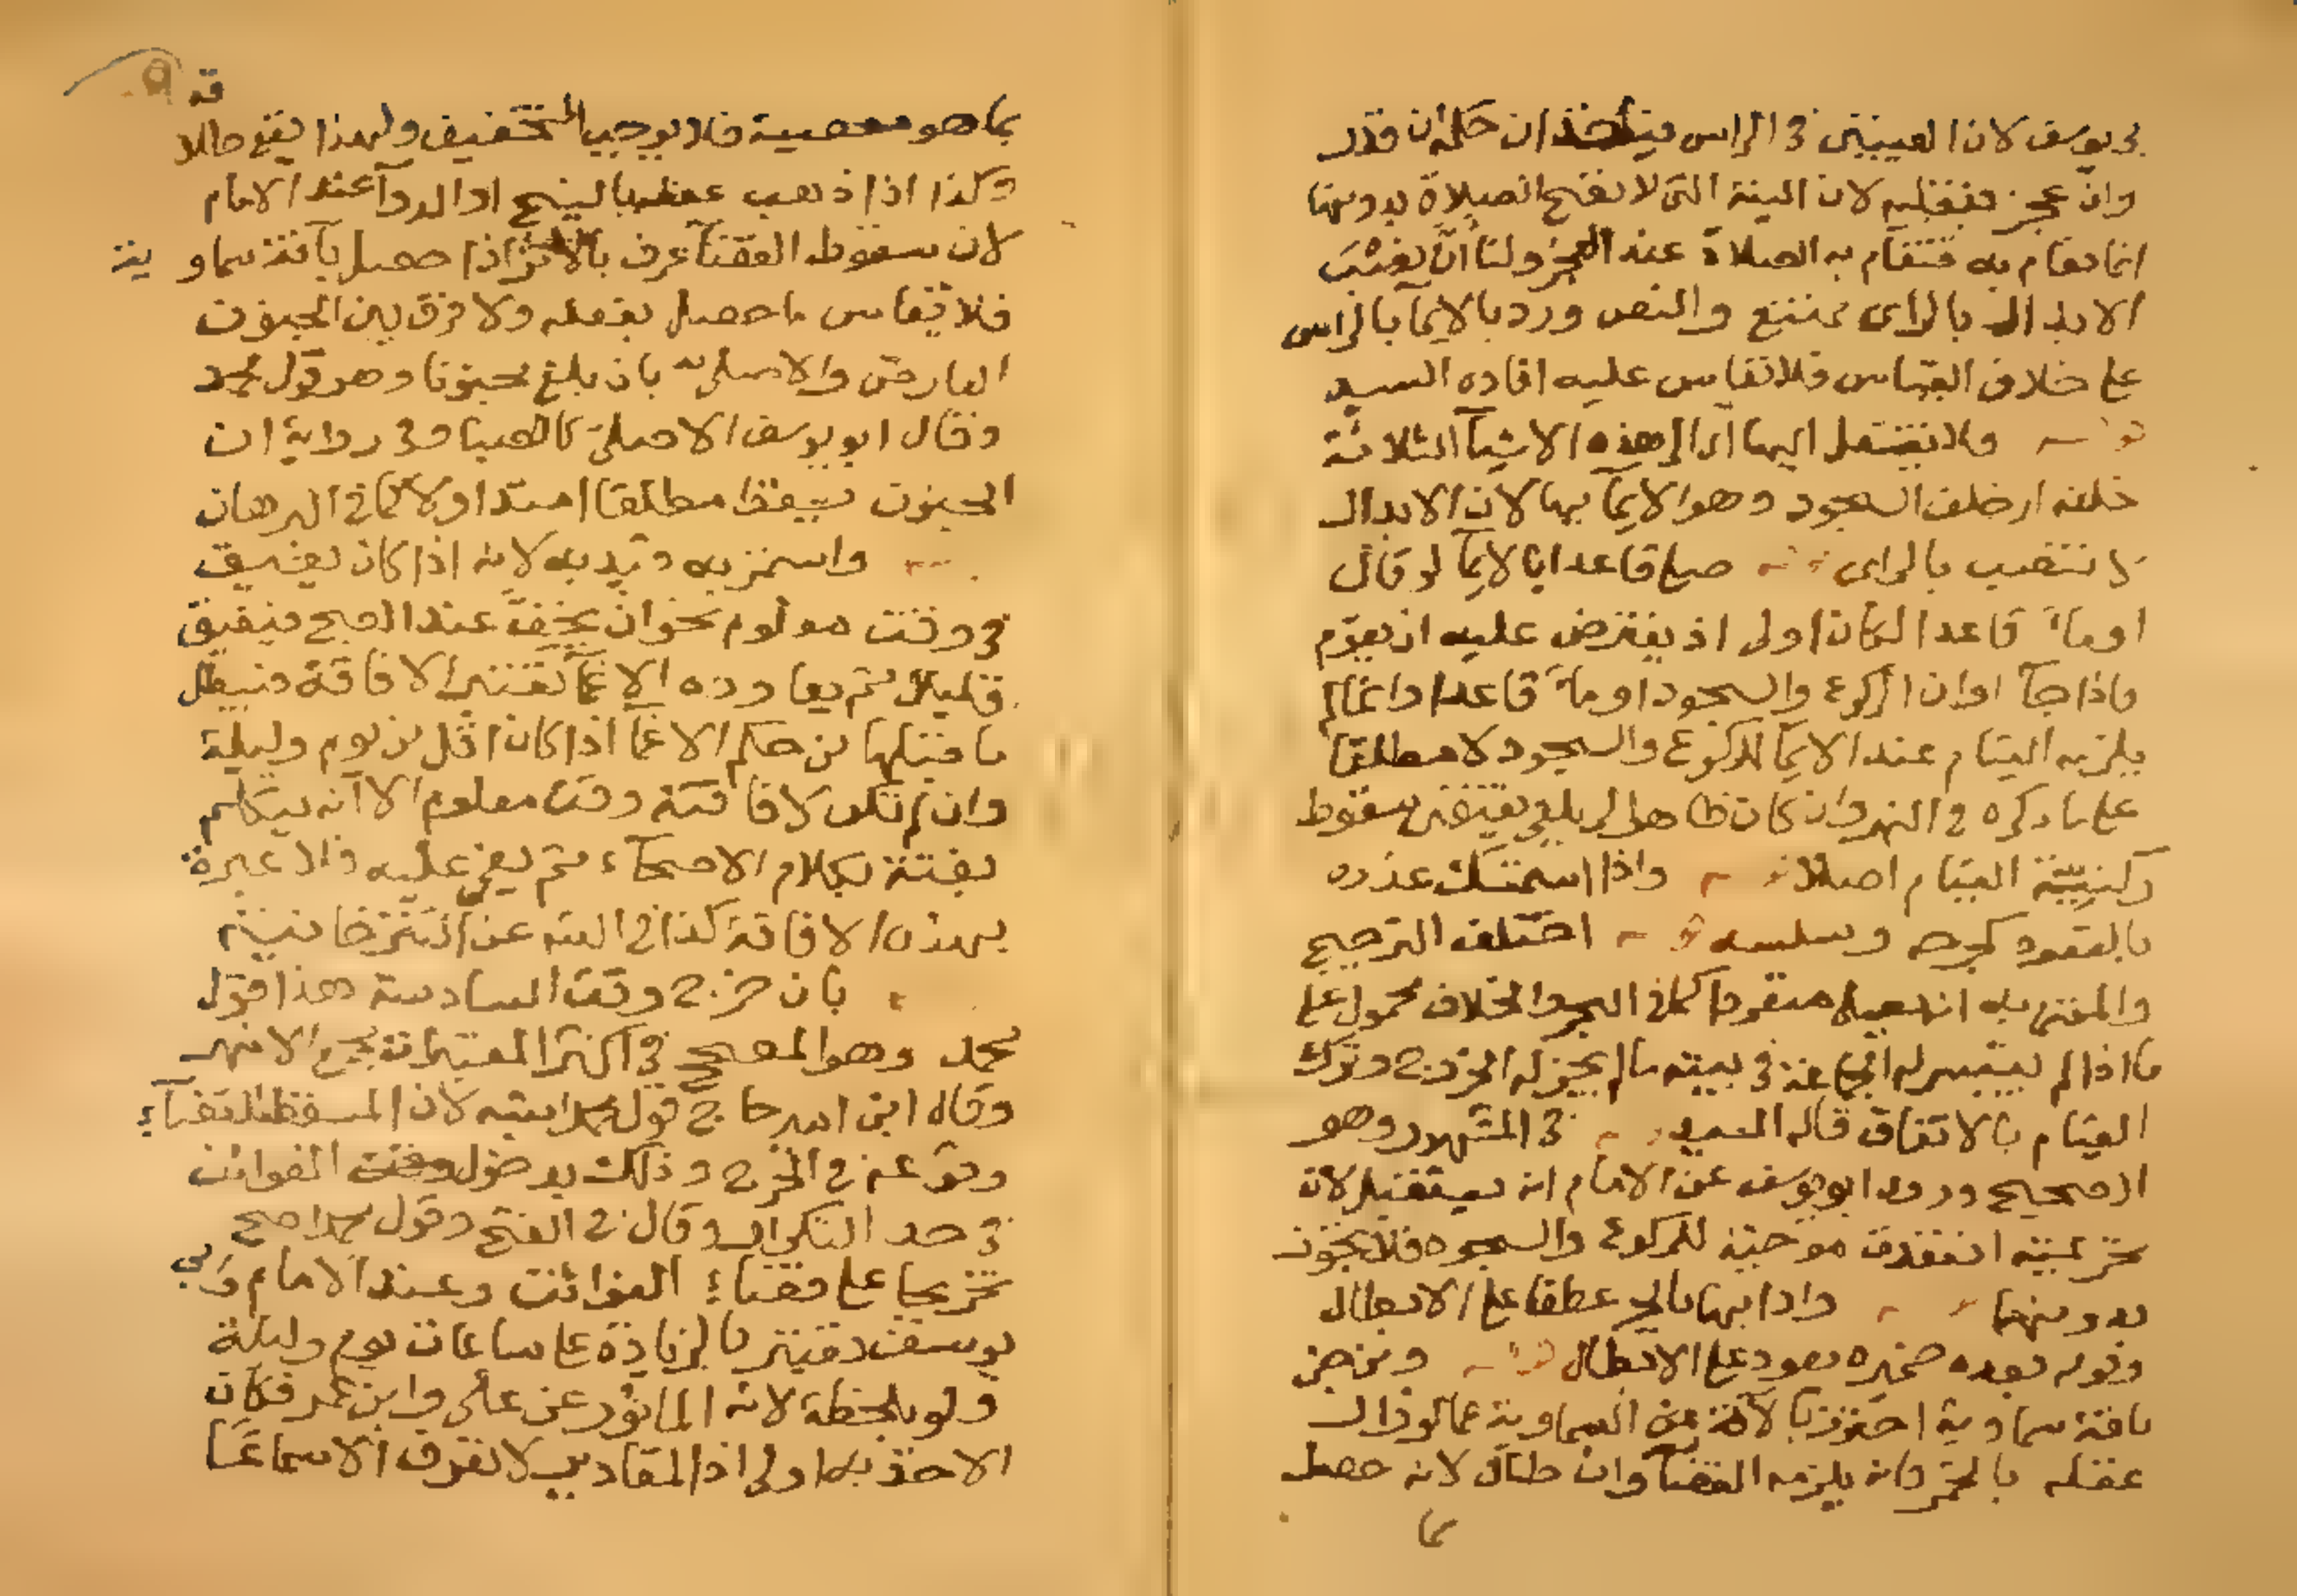 بى يوسف لان العينين فى الراس فيتأخذان حكمه ان قدر
وان عجز فبقلبه لان النية التى لا تصح الصلاة بدونها
انما تقام به فتقام به الصلاة عند العجز ولنا ان نصب
الابدال بالراى ممتنع والنص ورد بالايمآ بالراس
على خلاف القياس فلا تقاس عليه افاده السيد
ولا ينتقل اليها اى الى هذه الاشيآ الثلاثة
خلفه اى خلف السجود وهو الايمآ بها لان الابدال
لا تنصب بالراى صلى قاعدا بالايمآ لو قال
اومأ قاعدا لكان اولى اذ يفترض عليه ان يقوم
فاذا جآ اوان الركوع والسجود اومأ قاعدا وانما لم
يلزمه القيام عند الايمآ للركوع والسجود لا مطلقا
على ما ذكره فى النهر وان كان ظاهر الزيلعى يقتضى سقوط
ركنيّة القيام اصلا واذا استمسك عذره
بالقعود كجرح وسلسه اختلف الترجيح
والمفتى به انه يصلى منفردا كما فى البحر والخلاف محمول على
ما اذا لم يتيسر له الجماعة فى بيته ما لم يجز له الخروج وترك
القيام بالاتفاق قاله السيد فى المشهور وهو
الصحيح وروى ابو يوسف عن الامام انه يستقبل لان
تحريمته انعقدت موجبة للركوع والسجود فلا تجوز
بدونهما وادابهما بالجر عطفا على الابطال
وقوله بعده ضميره يعود على الابطال ومن جن
بافة سماوية احترز بالآفة عن السماوية عما لو زال
عقله بالخمر فانه يلزمه القضآ وان طال لانه حصل
بما
قد
بما هو معصية فلا يوجب التخفيف ولهذا يقع طلا
وكذا اذا ذهب عقله بالبنج او الدوآ عند الامام
لان سقوط القضآ عرف بالاثر اذا حصل بآفة سماوية
فلا يقاس ما حصل بفعله ولا فرق بين الجنون
العارض والاصلى بان بلغ مجنونا وهو قول محمد
وقال ابو يوسف الاصلى كالصبا وفى رواية ان
الجنون يسقط مطلقا امتد اولا كما فى البرهان
واستمر به قيد به لانه اذا كان يفيق
فى وقت معلوم نحو ان يخف عند الصبح فيفيق
قليلا ثم يعاوده الاغمآ تعتبر الافاقة فيبطل
ما قبلها من حكم الاغما اذا كان اقل من يوم وليلة
وان لم تكن لافاقته وقت معلوم الا انه يتكلم
بغتة بكلام الاصحآء ثم يغمى عليه فلا عبرة
بهذه الافاقة كذا فى النهر عن التترخانية
بان خرج وقت السادسة هذا قول
محمد وهو الصحيح فى اكثر المعتبرات مجمع الانهر
وقال ابن امير حاج قول محمد اشبه لان المسقط للقضآء
وقوعه فى الحرج وذلك بدخول وقت الفوائت
فى حد التكرار وقال فى الفتح وقول محمد اصح
تخريجا على قضاء الفوائت وعند الامام وابى
يوسف يعتبر بالزيادة على ساعات يوم وليلة
ولو بلحظة لانه الماثور عن على وابن عمر فكان
الاخذ به اولى اذ المقادير لا تعرف الا سماعا